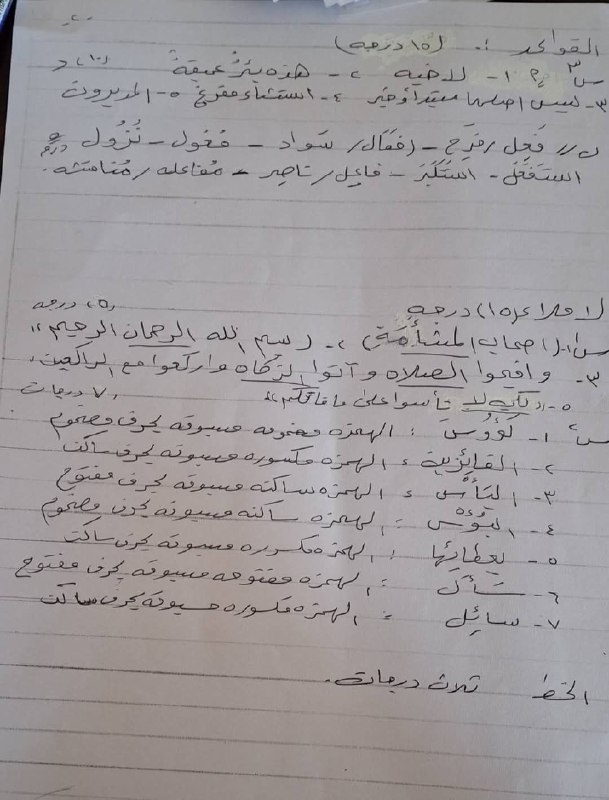 القواعد :. (١٥ درجه)
س٣ ١- لاخيه ٢- هذه بئرٌ عميقةٌ (١٠) د
٣- ليس اصلها مبتدأ وخبر ٤- استثناء مفرغ ٥- المديرون
ن // فَعِل / فرِح - (فَعَال / سَواد - فُعُول - نُزُول ٥ درجه
استَفعَلَ - استَكبَرَ - فاعِل / ناصِر - مُفاعله / مُنافسَه.
الاملاء (١٥) درجه (٥) درجه
س١ ١- (اصحاب المشأمة) ٢- (بسم الله الرحمان الرحيم "
٣- واقيموا الصلاه وآتوا الزكاه واركعوا مع الراكعين"
٥- "لكيلا تأسوا على ما فاتكم" (٧) درجات
س٢ ١- كؤوس : الهمزه مضمومه مسبوقه بحرف مضموم
٢- الفائزية : الهمزه مكسوره مسبوقه بحرف ساكت
٣- اليأس : الهمزه ساكنه مسبوقه بحرف مفتوح
٤- البؤس : الهمزه ساكنه مسبوقه بحرف مضموم
٥- بعطائها : الهمزه مكسوره مسبوقه بحرف ساكت
٦- سأل : الهمزه مفتوحه مسبوقه بحرف مفتوح
٧- سائل : الهمزه مكسوره مسبوقه بحرف ساكت
الخط ثلاث درجات.